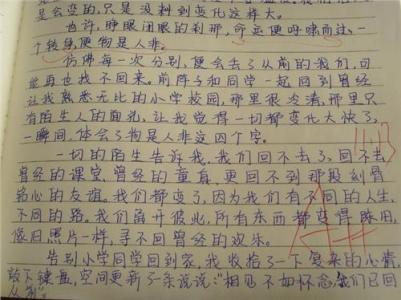 是会变的,只是没料到变化这样大。
也许,睁眼闭眼的刹那,命运便呼啸而过,一
个转身,便物是人非。
仿佛每一次分别,便会去了从前的我们,可
能再也找不回来。前阵子和同学一起回到曾经
让我熟悉无比的小学校园,那里很冷清,那里只
有陌生人的面孔,让我觉得一切都变化太快了,
一瞬间,体会了物是人非这四个字。
一切的陌生告诉我,我们回不去了,回不去
曾经的课堂,曾经的童真,更回不到那段刻骨
铭心的友谊。我们都变了,因为我们有不同的人生,
不同的路。我们离开彼此,所有东西都变得陈旧,
像旧照片一样,寻不回曾经的欢乐。
告别小学同学回到家,我收拾了一下复杂的小情,
敲下键盘,空间更新了一条说说:“相见不如怀念,我们已回